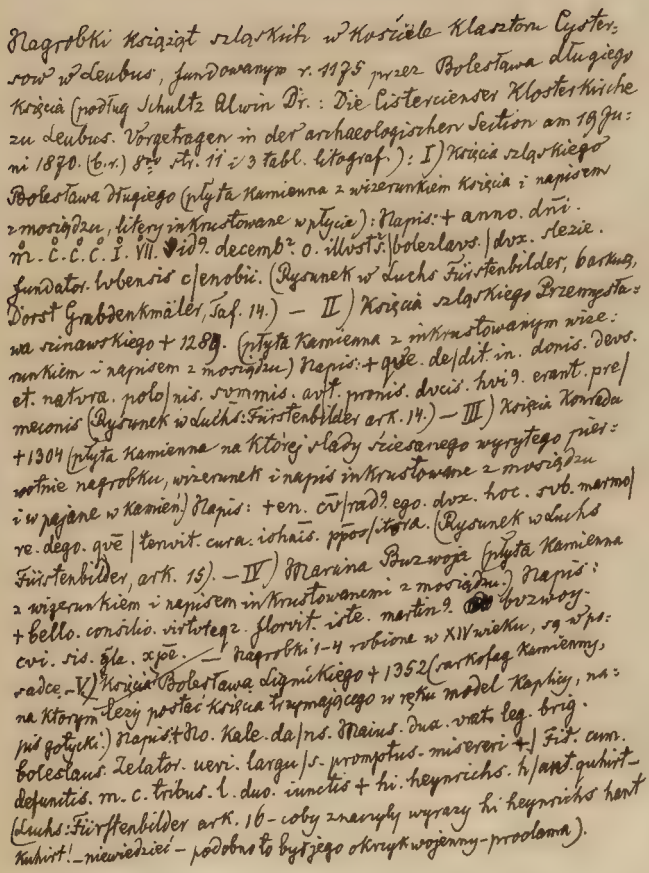 Nagrobki książąt szląskich w Kościele Klasztoru Cyster=
sow w Leubus, fundowanym r. 1175 przez Bolesława długiego
Księcia (podług Schultz Alwin Dr.: Die Cistercienser Klosterkirche
zu Leubus. Vorgetragen in der archaeologischen Section am 19 Ju=
ni 1870. (b.r.) 8vo str. 11 i 3 tabl. litograf.): I) Księcia szląskiego
Bolesława długiego (płyta Kamienna z wizerunkiem Księcia i napisem
z mosiądzu, litery inkrustowane w płycie): Napis: + anno. dn̄i.
m̊. c̊. c̊. c̊. i̊. v̊ıı. id9. decemb2. o. illustˢ. | bolezlavs. | dvx. slezie.
fundator. lvbensis c/enobii. (Rysunek w Luchs Fürstenbilder, 6 arkusz,
Dorst Grabdenkmäler, Taf. 14.) — II) Księcia szląskiego Przemysła=
wa scinawskiego + 1289. (płyta Kamienna z inkrustowanym wize=
runkiem i napisem z mosiądzu) Napis: + qve. de/dit. in. donis. devs.
et. natvra. polo/nis. svmmis. avt. pronis. dvcis. hvi9. erant. pre/
meconis (Rysunek w Luchs: Fürstenbilder ark. 14.) — III) Księcia Konrada
+ 1304 (płyta Kamienna na Której slady sciesanego wyrytego pier=
wotnie nagrobku, wizerunek i napis inkrustowane z mosiądzu
i wpajane w Kamien.) Napis: + en. cv̄/rad9. ego. dvx. hoc. svb. marmo/
re. dego. qvē / tenvit. cura. iohn̄is. pp̄os/itvra. (Rysunek w Luchs
Fürstenbilder, ark. 15). — IV) Marcina Buzwoja (płyta Kamienna
z wizerunkiem i napisem inkrustowanemi z mosiądzu.) Napis:
+ bello. consilio. virtvteq2. florvit. iste. martin9. bvzwoy.
cvi. sis. gl̄a. xp̄e. — Nagrobki 1-4 robione w XIV wieku, są w po=
sadce — V) Księcia Bolesława Lignickiego + 1352 (sarkofag Kamienny,
na Ktorym leży postać Księcia trzymającego w ręku model Kaplicy, na=
pis gotycki.) Napis: + No. Kale. da/ns. Maius. dux. vrat. leg. brig.
boleslaus. Zelator. ueri. largu/s. promptus. misereri + / Fit. cum.
defunctis. m. c. tribus. l. duo. iunctis + hi. heynrichs. h/ant. quhirt—
(Luchs: Fürstenbilder ark. 16 — coby znaczyły wyrazy hi heynrichs hant
Kuhirt! — niewiedzieć — podobno to był jego okrzyk wojenny — proclama).